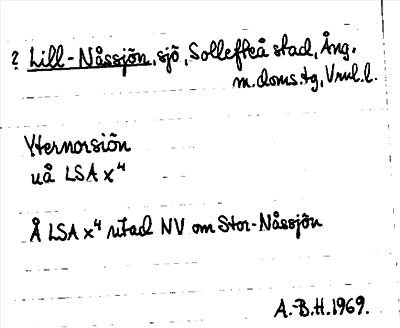 ? Lill-Nåssjön, sjö, Sollefteå stad, Ång.
m. doms.tg, Vrul.l.
Yternorsiön
uå LSA x⁴
Å LSA x⁴ ritad NV om Stor-Nåssjön
A.-B.H. 1969.